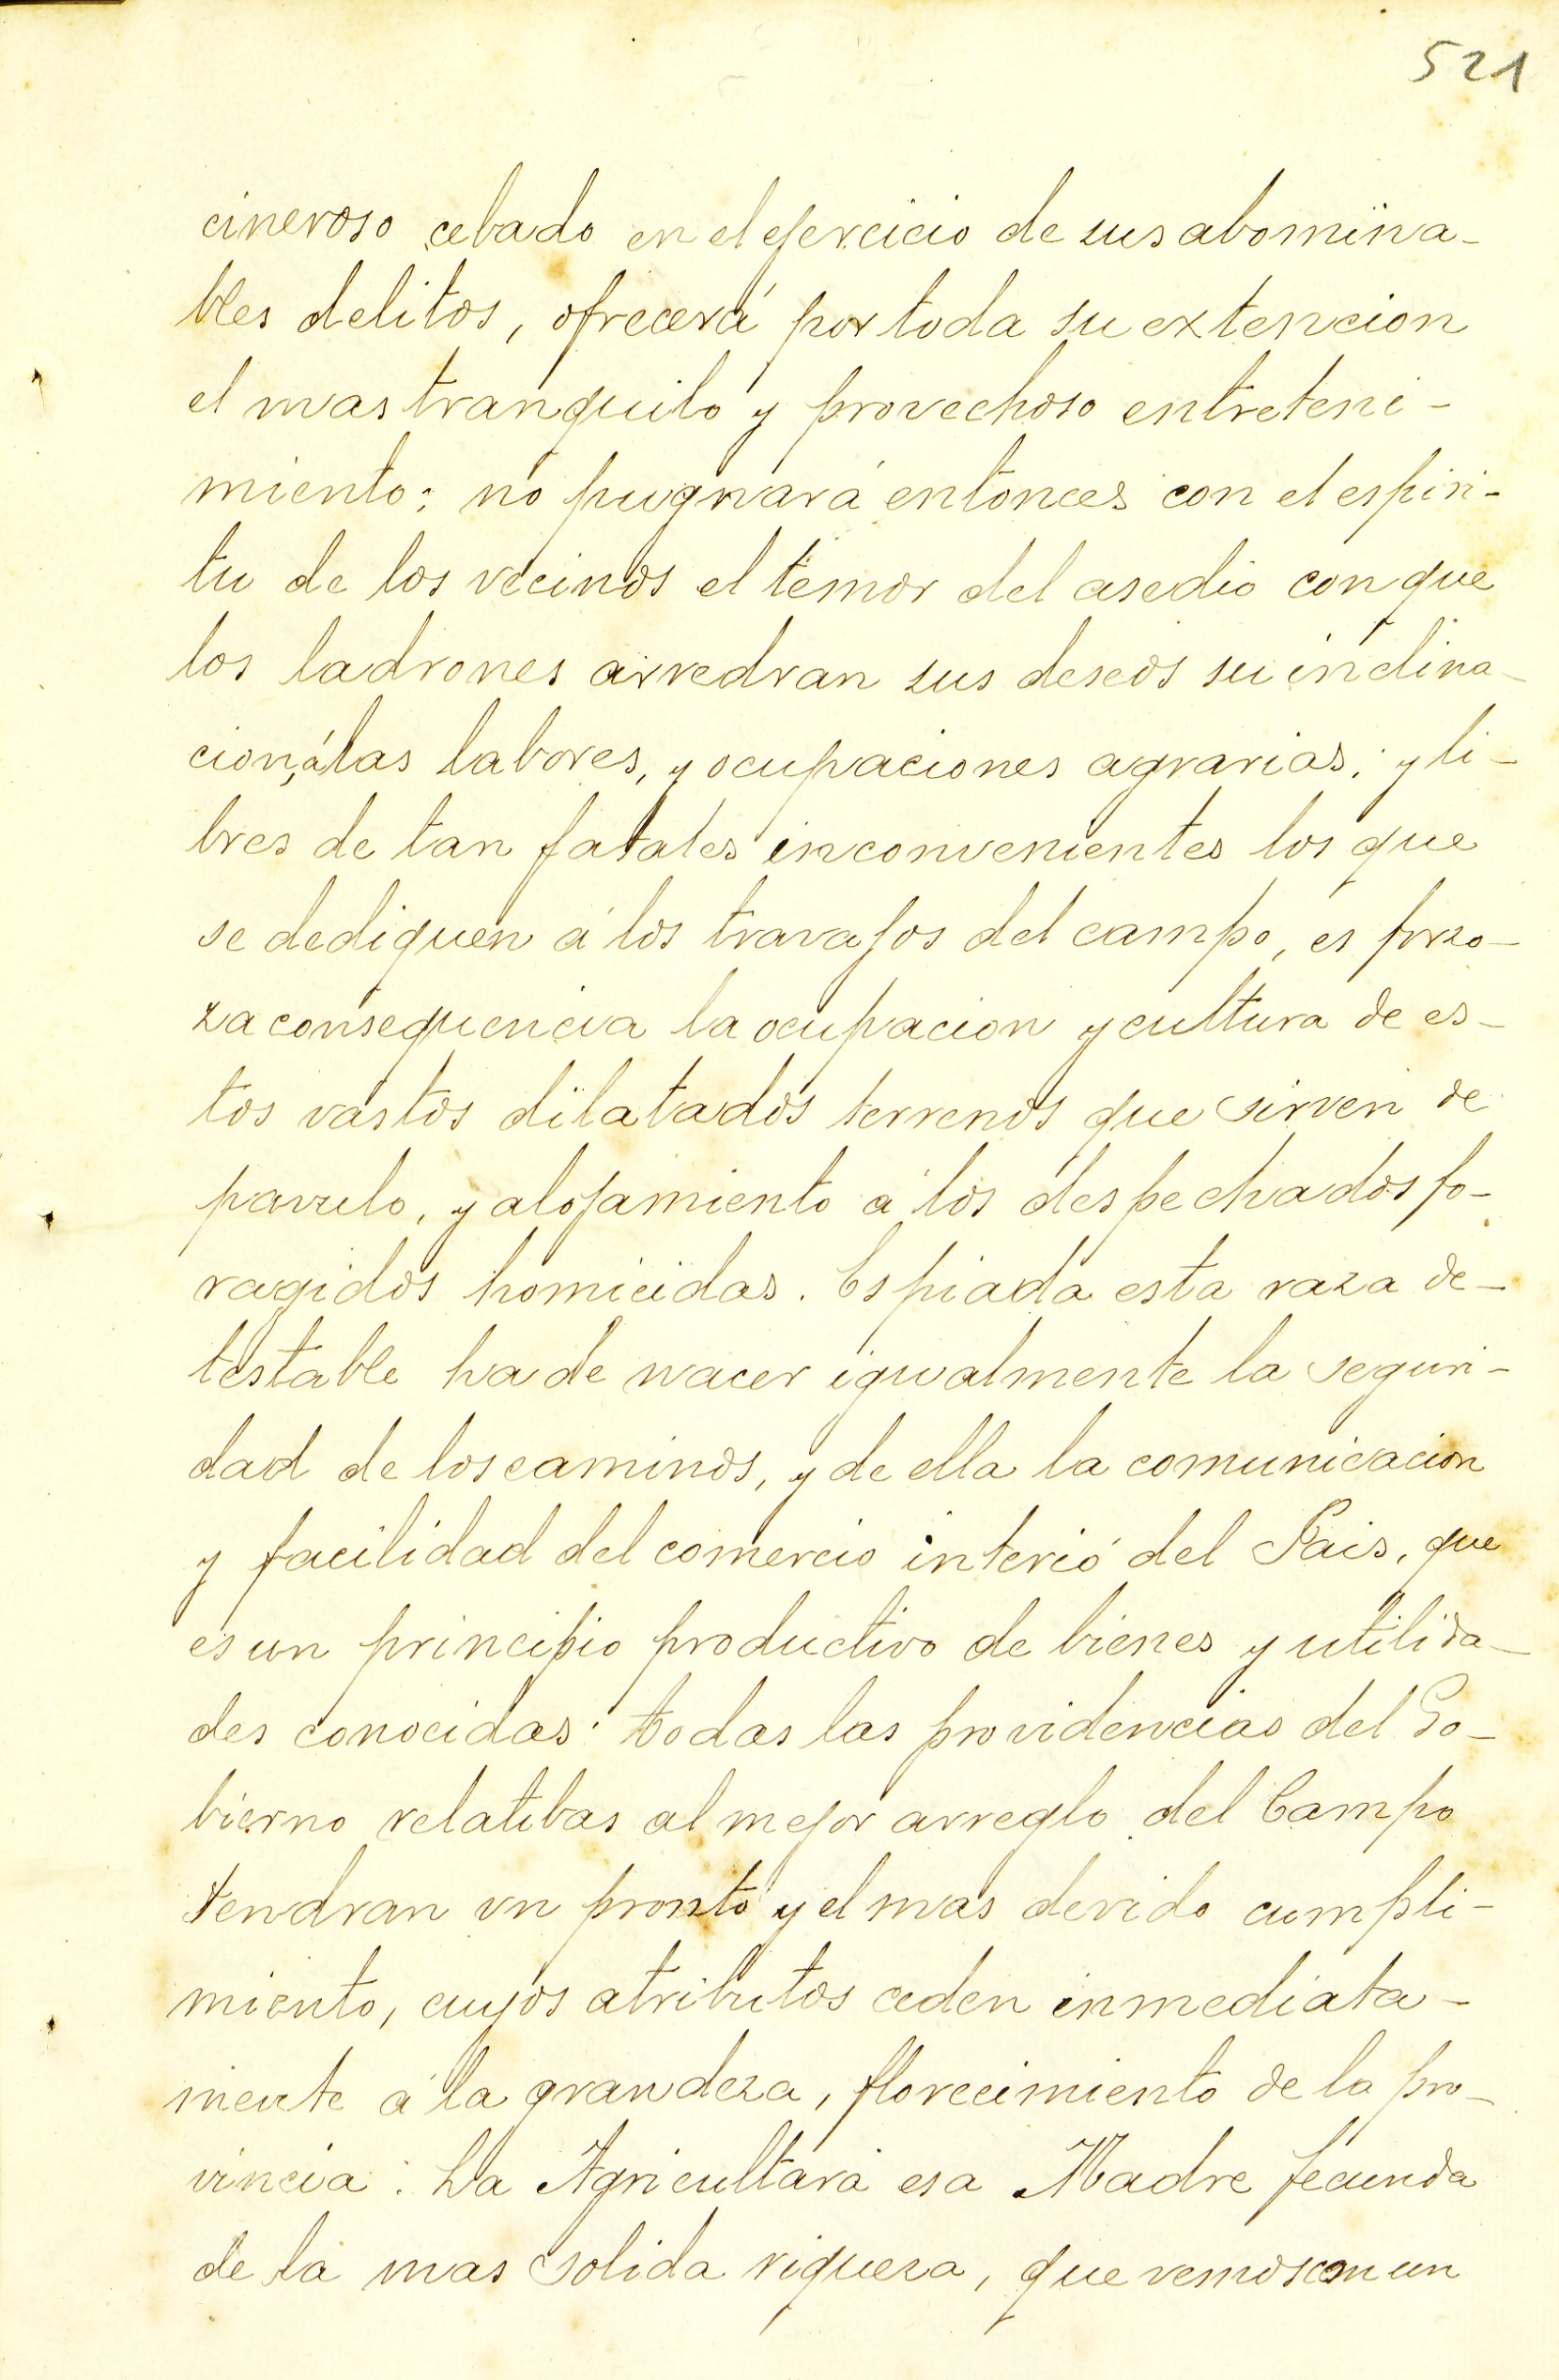 521
cineroso cebado en el ejercicio de sus abomina-
bles delitos, ofrecerá por toda su extencion
el mas tranquilo y provechoso entreteni-
miento; no pugnará entonces con el espiri-
tu de los vecinos el temor del asedio con que
los ladrones arredran sus deseos su inclina-
cion, á las labores, y ocupaciones agrarias; y li-
bres de tan fatales inconvenientes los que
se dediquen á los travajos del campo, es forzo-
za consequencia la ocupacion y cultura de es-
tos vastos dilatados terrenos que sirven de
pavulo, y alojamiento á los despechados fo-
ragidos homicidas. Espiada esta raza de-
testable ha de nacer igualmente la seguri-
dad de los caminos, y de ella la comunicacion
y facilidad del comercio interió del Pais, que
es un principio productivo de bienes y utilida-
des conocidas: todas las providencias del Go-
bierno relatibas al mejor arreglo del Campo
tendran un pronto y el mas devido cumpli-
miento, cuyos atributos ceden inmediata-
mente á la grandeza, florecimiento de la pro-
vincia: La Agricultara esa Madre fecunda
de la mas solida riqueza, que vemos con un